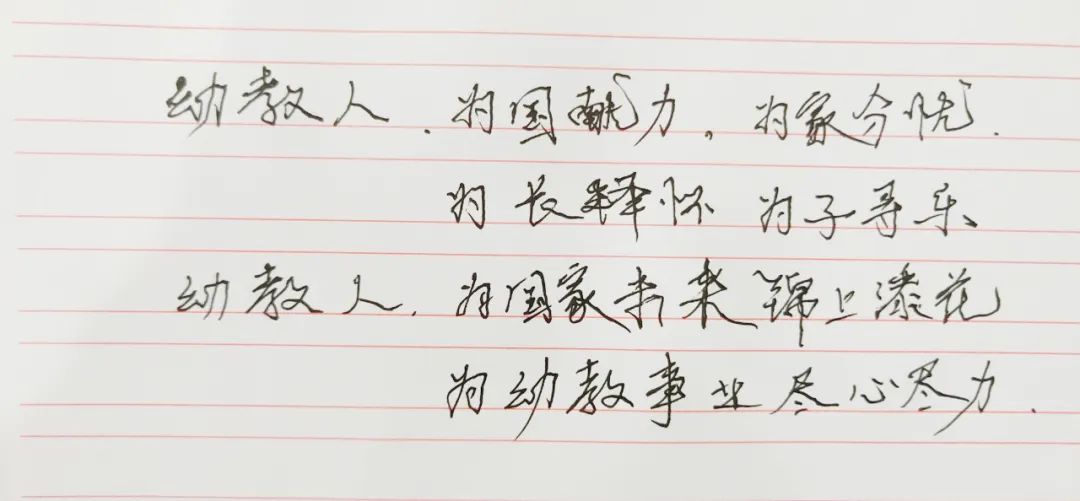 幼教人，为国献力，为家分忧.
为长释怀 为子寻乐、
幼教人，为国家未来 锦上添花
为幼教事业尽心尽力.